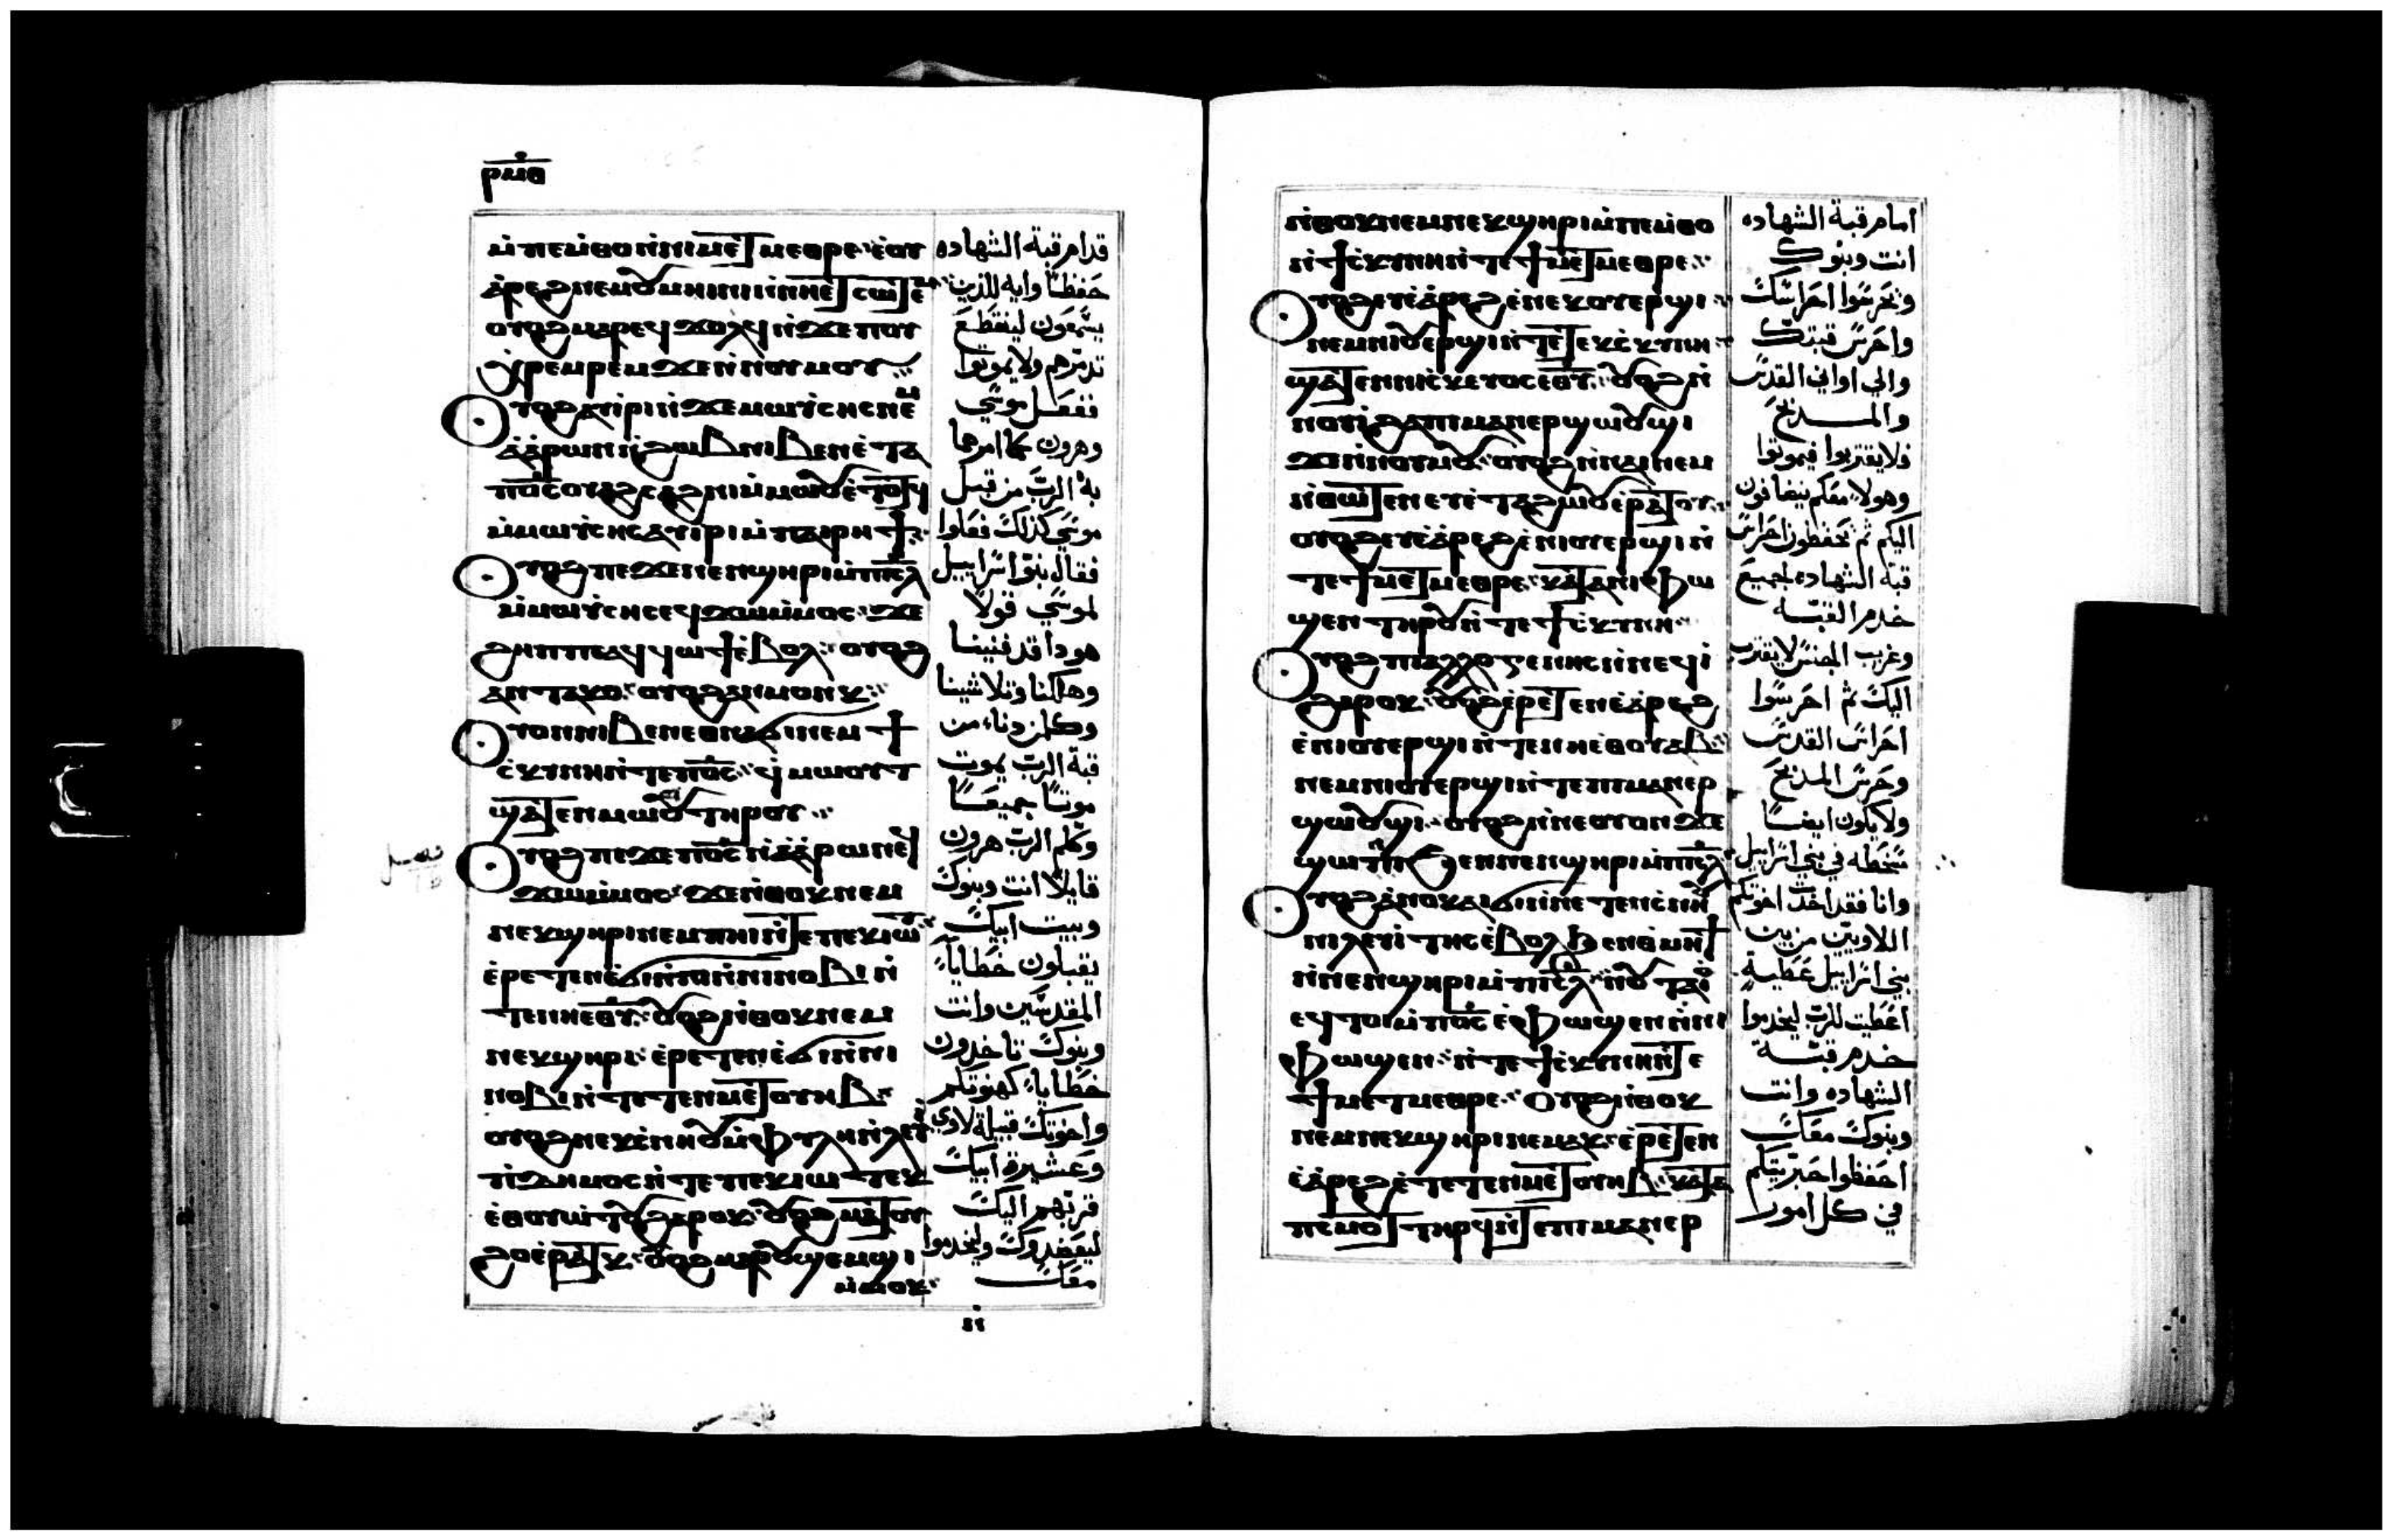 ⲣⲙⲑ
ⲙ̀ⲡⲉⲙ̀ⲑⲟ ⲛ̀ⲛⲓⲙⲉⲧⲙⲉⲑⲣⲉ ⲉ̀ⲟⲩ
ⲁ̀ⲣⲉϩ ⲛⲉⲙ ⲟⲩⲙⲏⲓⲛⲓ ⲛ̀ⲛⲏⲉⲧⲥⲱⲧⲉⲙ
ⲟⲩⲟϩ ⲙⲁⲣⲉϥϫⲟⲗϥ ⲛ̀ϫⲉ ⲡⲟⲩ
ⲭⲣⲉⲙⲣⲉⲙ ϫⲉ ⲛ̀ⲛⲟⲩⲙⲟⲩ
ⲟⲩⲟϩ ⲁϥⲓⲣⲓ ⲛ̀ϫⲉ ⲙⲱⲩ̀ⲥⲏⲥ ⲛⲉⲙ
ⲁ̀ⲁ̀ⲣⲱⲛ ⲛ̀ϩⲱⲃ ⲛⲓⲃⲉⲛ ⲉ̀ⲧⲁ
ⲡⲟ̅ⲥ̅ ⲟⲩⲁϩⲥⲁϩⲛⲓ ⲙ̀ⲙⲱⲟⲩ ⲉ̀ⲧⲟⲧϥ
ⲙ̀ⲙⲱⲩ̀ⲥⲏⲥ ⲁⲩⲓⲣⲓ ⲙ̀ⲡⲁⲓⲣⲏϯ
ⲟⲩⲟϩ ⲡⲉϫⲉ ⲛⲉⲛϣⲏⲣⲓ ⲙ̀ⲡⲓⲥ̅ⲗ̅
ⲙ̀ⲙⲱⲩ̀ⲥⲏⲥ ⲉⲩϫⲱ ⲙ̀ⲙⲟⲥ ϫⲉ
ϩⲏⲡⲡⲉ ⲁⲩϥⲱϯ ⲉ̀ⲃⲟⲗ ⲟⲩⲟϩ
ⲁⲛⲧⲁⲕⲟ ⲟⲩⲟϩ ⲁⲛⲙⲟⲩⲛⲕ
ⲟⲩⲟⲛ ⲛⲓⲃⲉⲛ ⲉⲑⲛⲁϭⲓ ⲛⲉⲙ ϯ
ⲥ̀ⲕⲩⲛⲏ ⲛ̀ⲧⲉ ⲡⲟ̅ⲥ̅ ϥ̀ⲙⲱⲟⲩⲧ
ϣⲁⲧⲉⲛⲙⲱⲟⲩ ⲧⲏⲣⲟⲩ
ⲟⲩⲟϩ ⲡⲉϫⲉ ⲡⲟ̅ⲥ̅ ⲛ̀ⲁ̀ⲁ̀ⲣⲱⲛ ⲉϥ
ϫⲱ ⲙ̀ⲙⲟⲥ ϫⲉ ⲛ̀ⲑⲟⲕ ⲛⲉⲙ
ⲛⲉⲕϣⲏⲣⲓ ⲛⲉⲙ ⲡⲏⲓ ⲛ̀ⲧⲉ ⲡⲉⲕⲓⲱⲧ
ⲉ̀ⲣⲉⲧⲉⲛⲉ̀ϭⲓ ⲛ̀ⲛⲓⲛⲟⲃⲓ ⲛ̀
ⲧⲉ ⲛⲏⲉⲑ̅ⲩ̅ ⲟⲩⲟϩ ⲛ̀ⲑⲟⲕ ⲛⲉⲙ
ⲛⲉⲕϣⲏⲣⲓ ⲉ̀ⲣⲉⲧⲉⲛⲉ̀ϭⲓ ⲛ̀ⲛⲓ
ⲛⲟⲃⲓ ⲛ̀ⲧⲉ ⲧⲉⲛⲙⲉⲧⲟⲩⲏⲃ
ⲟⲩⲟϩ ⲛⲉⲕⲥ̀ⲛⲏⲟⲩ ⲙ̀ⲫⲩⲗⲏ ⲛ̀ⲗⲉⲩⲓ̀
ⲡⲓⲇⲏⲙⲟⲥ ⲛ̀ⲧⲉ ⲡⲉⲕⲓⲱⲧ ⲉⲕ
ⲉ̀ⲑⲟⲩⲱⲧⲟⲩ ϩⲁⲣⲟⲕ ⲟⲩⲟϩ ⲙⲁⲧⲟⲩ
ϩⲟ ⲉ̀ⲣⲁⲧⲕ ⲟⲩⲟϩ ⲙⲁⲣⲟⲩϣⲉⲙϣⲓ
ⲙ̀ⲙⲟⲕ
قدام قبة الشهاده
حفظاً وايه للذين
يسمعون لينقطع
تذمرهم ولا يموتوا
ففعل موسي
وهرون كما امرهما
به الرب من قبل
موسي كذلك فعلوا
فقال بنوا اسراييل
لموسي قولاً
هودا قد فنينا
وهلكنا وتلاشينا
وكل من دنا من
قبة الرب يموت
موتنا جميعاً
وكلم الرب هرون
قايلاً انت وبنوك
وبيت ابيك
يقبلون خطايا
المقدسين وانت
وبنوك تاخدون
خطايا كهنوتكم
واخوتك قبيلة لاوي
وعشيرة ابيك
قربهم اليك
ليعضدوك وليخدموا
معك
ⲛ̀ⲑⲟⲕ ⲛⲉⲙ ⲛⲉⲕϣⲏⲣⲓ ⲙ̀ⲡⲉⲙ̀ⲑⲟ
ⲛ̀ϯⲥ̀ⲕⲩⲛⲏ ⲛ̀ⲧⲉ ϯⲙⲉⲧⲙⲉⲑⲣⲉ
ⲟⲩⲟϩ ⲉⲩⲉ̀ⲁ̀ⲣⲉϩ ⲉ̀ⲛⲉⲕⲟⲩⲉⲣϣⲓ
ⲛⲉⲙ ⲛⲓⲟⲩⲉⲣϣⲓ ⲛ̀ⲧⲉ ⲧⲉⲕⲥ̀ⲕⲩⲛⲏ
ϣⲁⲧⲉⲛ ⲛⲓⲥ̀ⲕⲉⲩⲟⲥ ⲉⲑ̅ⲩ̅ ⲟⲩⲟϩ ⲛ̀
ⲛⲟⲩⲓ̀ ϩⲁ ⲡⲓⲙⲁⲛⲉⲣϣⲱⲟⲩϣⲓ
ϫⲉ ⲛ̀ⲛⲟⲩⲙⲟⲩ ⲟⲩⲟϩ ⲛ̀ⲛⲁⲓ ⲛⲉⲙ
ⲛ̀ⲑⲱⲧⲉⲛ ⲉⲩⲉ̀ⲧⲁϩⲱⲟⲩ ⲉ̀ⲣⲁⲧⲟⲩ
ⲟⲩⲟϩ ⲉⲩⲉ̀ⲁ̀ⲣⲉϩ ⲉ̀ⲛⲓⲟⲩⲉⲣϣⲓ ⲛ̀
ⲧⲉ ϯⲙⲉⲧⲙⲉⲑⲣⲉ ⲕⲁⲧⲁ ⲛⲓⲫⲱ
ϣⲉⲛ ⲧⲏⲣⲟⲩ ⲛ̀ⲧⲉ ϯⲥ̀ⲕⲩⲛⲏ
ⲟⲩⲟϩ ⲡⲓⲁⲗⲗⲟⲅⲉⲛⲏⲥ ⲛ̀ⲛⲉϥⲓ̀
ϩⲁⲣⲟⲕ ⲟⲩⲟϩ ⲉ̀ⲣⲉⲧⲉⲛⲉ̀ⲁ̀ⲣⲉϩ
ⲉ̀ⲛⲓⲟⲩⲉⲣϣⲓ ⲛ̀ⲧⲉ ⲛⲏⲉ̀ⲑⲟⲩⲁⲃ
ⲛⲉⲙ ⲛⲓⲟⲩⲉⲣϣⲓ ⲛ̀ⲧⲉ ⲡⲓⲙⲁⲛⲉⲣ
ϣⲱⲟⲩϣⲓ ⲟⲩⲟϩ ⲛ̀ⲛⲉ ⲟⲩⲟⲛ ϫⲉ
ϣⲱⲡⲓ ϧⲉⲛ ⲛⲉⲛϣⲏⲣⲓ ⲙ̀ⲡⲓⲥ̅ⲗ̅
ⲟⲩⲟϩ ⲁⲛⲟⲕ ⲁⲓϭⲓ ⲛ̀ⲛⲉⲧⲉⲛⲥ̀ⲛⲏⲟⲩ
ⲛⲓⲗⲉⲩⲓ̀ⲧⲏⲥ ⲉ̀ⲃⲟⲗ ϧⲉⲛ ⲑ̀ⲙⲏϯ
ⲛ̀ⲛⲉⲛϣⲏⲣⲓ ⲙ̀ⲡⲓⲥ̅ⲗ̅ ⲛ̀ⲟⲩⲧⲁⲓⲟ
ⲉϥⲧⲟⲓ ⲙ̀ⲡⲟ̅ⲥ̅ ⲉ̀ⲫⲱϣⲉⲛ ⲛ̀ⲛⲓ
ⲫⲱϣⲉⲛ ⲛ̀ⲧⲉ ϯⲥ̀ⲕⲩⲛⲏ ⲛ̀ⲧⲉ
ϯⲙⲉⲧⲙⲉⲑⲣⲉ ⲟⲩⲟϩ ⲛ̀ⲑⲟⲕ
ⲛⲉⲙ ⲛⲉⲕϣⲏⲣⲓ ⲛⲉⲙⲁⲕ ⲉ̀ⲣⲉⲧⲉⲛ
ⲉ̀ⲁ̀ⲣⲉϩ ⲉ̀ⲧⲉⲧⲉⲛⲙⲉⲧⲟⲩⲏⲃ ⲕⲁⲧⲁ
ⲡⲥⲙⲟⲧ ⲧⲏⲣϥ ⲛ̀ⲧⲉ ⲡⲓⲙⲁⲛⲉⲣ
امام قبة الشهاده
انت وبنوك
ويحرسوا احراسك
واحرس قبتك
والي اواني القدس
والمدبح
فلا يقتربوا فيموتوا
وهولا معكم ينضافون
اليكم ثم يحفظون احراس
قبة الشهاده لجميع
خدم القبه
وغريب الجنس لا يقترب
اليك ثم احرسوا
احراس القدس
وحرس المدبح
ولا يكون ايضاً
سخطه في بني اسراييل
وانا فقد اخدت اخوتكم
اللاويين من بين
بني اسراييل عطية
اعطيت للرب ليخدموا
خدم قبة
الشهاده وانت
وبنوك معك
احفظوا حبريتكم
في كل امور